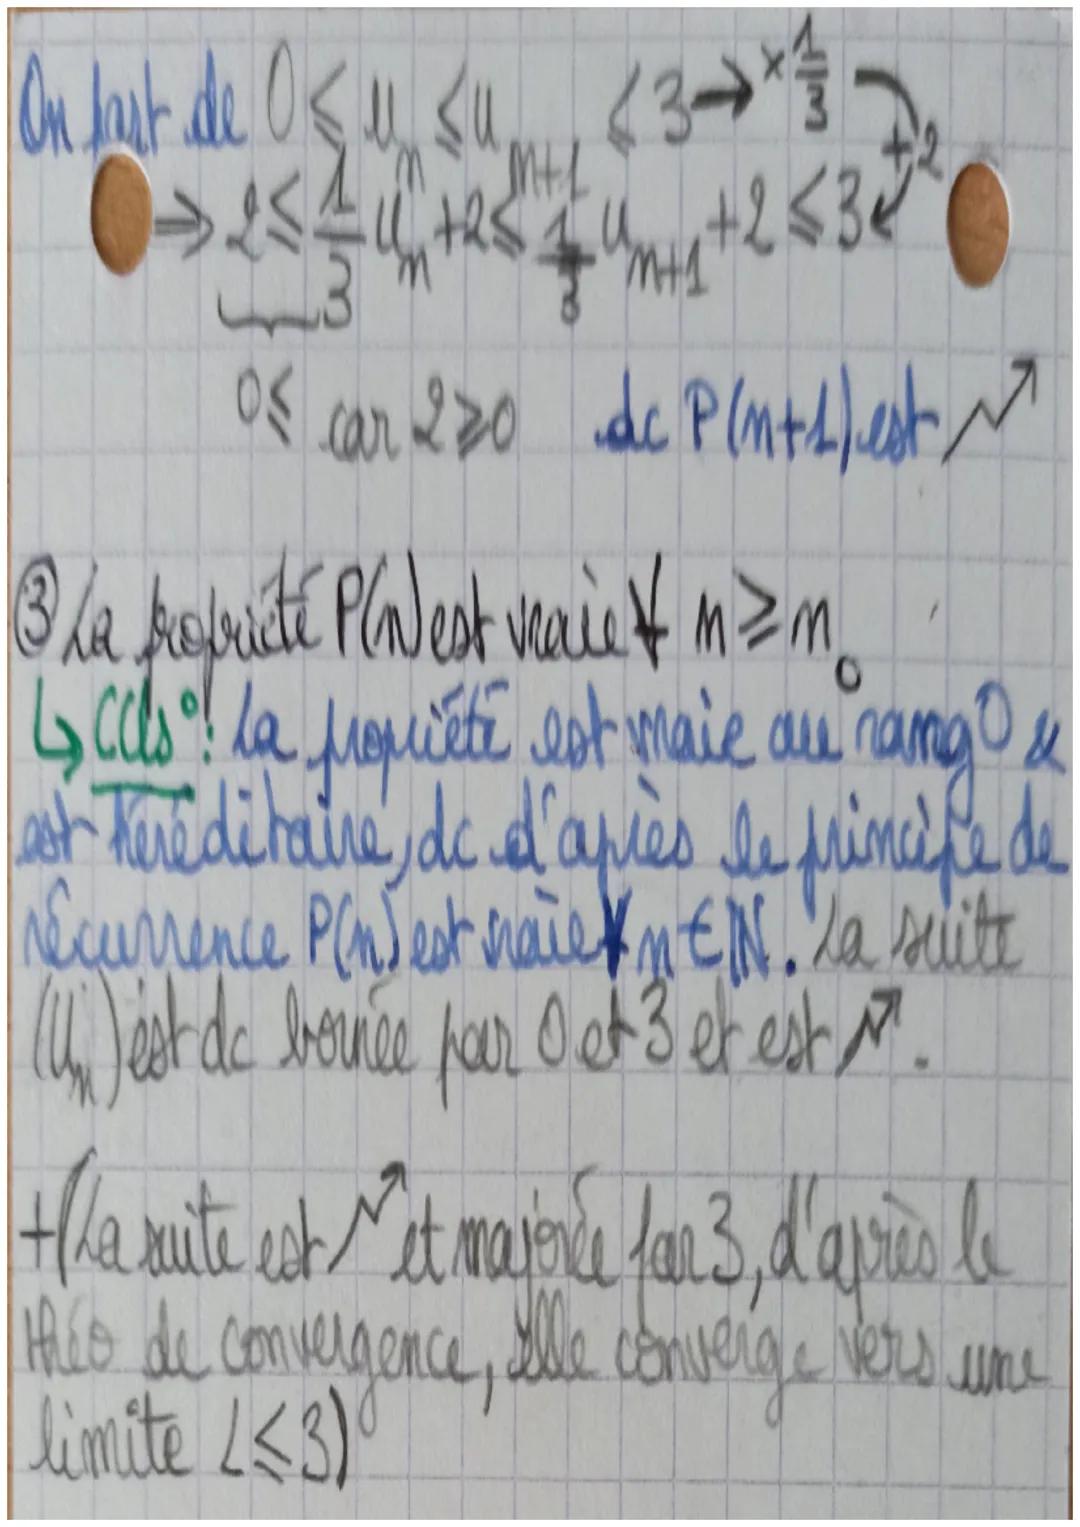 On part de 0 ≤ u_n ≤ u_{n+1} ≤ 3 → ×1/3 +2
⇒ 2 ≤ 1/3 u_n + 2 ≤ 1/3 u_{n+1} + 2 ≤ 3
0 ≤ car 2 ≥ 0 dc P(n+1) est ↗
③ La propriété P(n) est vraie ∀ n ≥ n₀
↳ CCls° : La propriété est vraie au rang 0 &
est héréditaire, dc d'après le principe de
récurrence P(n) est vraie ∀ n ∈ ℕ. La suite
(U_n) est dc bornée par 0 et 3 et est ↗.
+ (La suite est ↗ et majorée par 3, d'après le
théo de convergence, elle converge vers une
limite L ≤ 3)